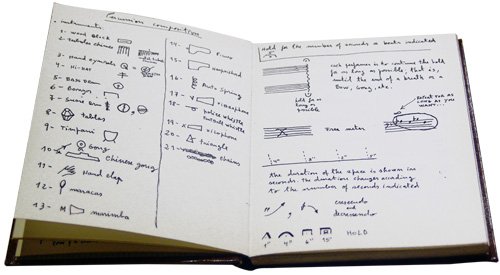 Percussion composition
. instruments:
1- Wood Block
2- Tubular chimes
3- Hand cymbals
4- Hi-Hat
5- Bass Drum
6- Bongos
7- Snare Drum
8- Tablas
9- Timpani
10- Gong
Chinese gong
11- Hand clap
12- maracas
13- M marimba
14- Piano
15- Harpsichord
16- Auto Spring
17- V Vibraphone
18- police whistle
19- X Xilophone
20- Triangle
21- chains
Hold for the number of seconds or beats indicated
each performer is to continue the hold
for as long as possible, that is,
until the end of a breath or a
bow, gong, etc.
hold for as
long as
possible
repeat for as
long as you
want...
Free meter
2" 3" 4"
The duration of the space is shown in
seconds. The durations change according
to the number of seconds indicated
crescendo
and
decrescendo
1" 4" 6" 15" HOLD